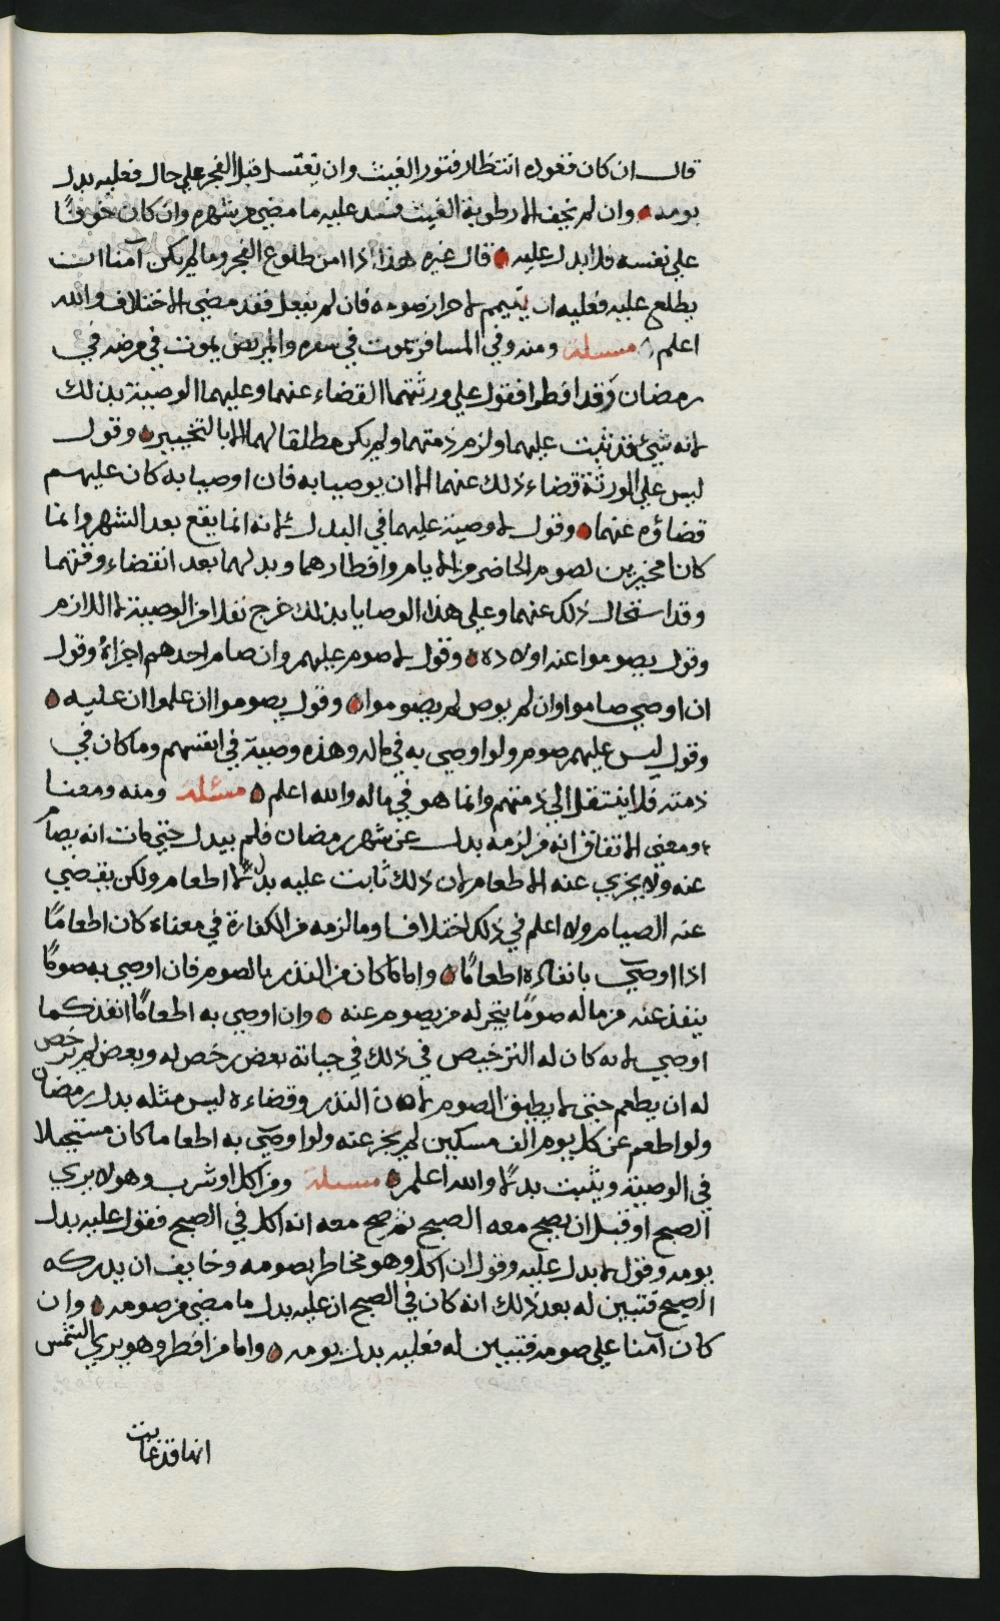 قال ان كان قعوده انتظار فتور الغيث وان يغتسل قبل الفجر على حال فعليه بدل
يومه وان لم يخف الا رطوبة الغيث فسد عليه ما مضى من شهره وان كان خوفًا
على نفسه فلا بدل عليه قال غيره هذا اذا امن طلوع الفجر وما لم يكن آمنا ان
يطلع عليه فعليه ان يتيمم لاحراز صومه فان لم يفعل فقد مضى الاختلاف والله
اعلم مسئلة ومنه وفي المسافر يموت في سفره والمريض يموت في مرضه في
رمضان وقد افطرا فقول على ورثتهما القضاء عنهما وعليهما الوصية بذلك
لانه شيئ قد ثبت عليهما ولزم ذمتهما ولم يكن مطلقا لهما الا بالتخيير وقول
ليس على الورثة قضاء ذلك عنهما الا ان يوصيا به فان اوصيا به كان عليهم
قضاؤه عنهما وقول لا وصية عليهما في البدل لانه انما يقع بعد الشهر وانما
كانا مخيرين لصوم الحاضر من الايام وافطارهما وبدلهما بعد انقضاء وقتهما
وقد استحال ذلك عنهما وعلى هذا الوصايا بذلك خرج نفلا من الوصية لا اللازم
وقول يصوموا عنه اولاده وقول لا صوم عليهم وان صام احدهم اجزاه وقول
ان اوصى صاموا وان لم يوص لم يصوموا وقول يصوموا ان علموا ان عليه
وقول ليس عليهم صوم ولو اوصى به في ماله وهذه وصية في انفسهم وما كان في
ذمته فلا ينتقل الى ذمتهم وانما هو في ماله والله اعلم مسئلة ومنه ومعنا
ومعنى الاتفاق انه من لزمه بدل عن شهر رمضان فلم يبدل حتى مات انه يصام
عنه ولا يجزي عنه الاطعام لان ذلك ثابت عليه بدلا لا اطعام ولكن يقضي
عنه الصيام ولا اعلم في ذلك اختلافا وما لزمه من الكفارة في معناه كان اطعامًا
اذا اوصى بانفاذه اطعامًا واما ما كان من النذر بالصوم فان اوصى به صومًا
ينفذ عنه من ماله صومًا يتجر له من يصوم عنه وان اوصى به اطعامًا انفذ كما
اوصى لانه كان له الترخيص في ذلك في حياته بعض رخص له وبعض لم يرخص
له ان يطعم حتى لا يطيق الصوم لان النذر وقضاءه ليس مثله بدل رمضان
ولو اطعم عن كل يوم الف مسكين لم يجز عنه ولو اوصى به اطعاما كان مستحيلا
في الوصية ويثبت بدلًا والله اعلم مسئلة ومن اكل او شرب وهو لا يرى
الصبح او قبل ان يصح معه الصبح ثم صح معه انه اكل في الصبح فقول عليه بدل
يومه وقول لا بدل عليه وقول ان اكل وهو مخاطر بصومه وخايف ان يدركه
الصبح فتبين له بعد ذلك انه كان في الصبح ان عليه بدل ما مضى من صومه وان
كان آمنا على صومه فتبين له فعليه بدل يومه واما من افطر وهو يرى الشمس
انها قد غابت